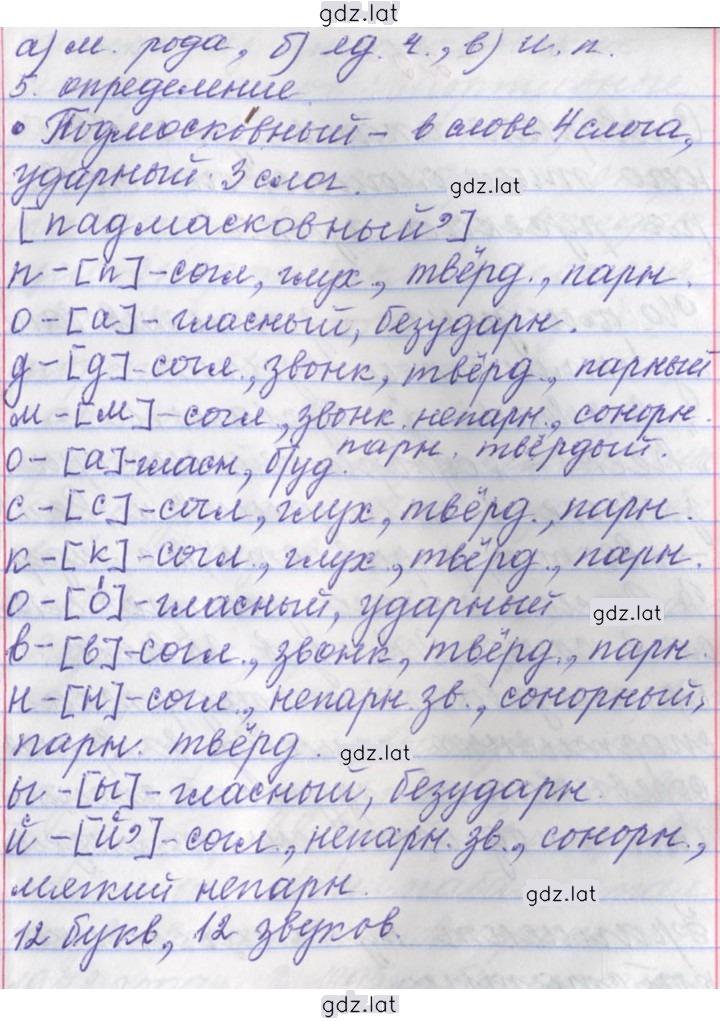 gdz.lat
а) м. рода, б) ед. ч., в) и. п.
5. определение
• Подмоско́вный – в слове 4 слога,
ударный 3 слог.
gdz.lat
[падмасковный’]
п – [п] – согл, глух., твёрд., парн.
о – [а] – гласный, безударн.
д – [д] – согл., звонк, твёрд., парный
м – [м] – согл, звонк. непарн., сонорн.
парн. твёрдый.
о – [а] – гласн, б/уд.
с – [с] – согл, глух, твёрд., парн.
к – [к] – согл., глух, твёрд., парн.
о – [о́] – гласный, ударный
gdz.lat
в – [в] – согл., звонк, твёрд., парн.
н – [н] – согл., непарн. зв., сонорный,
парн. твёрд.
gdz.lat
ы – [ы] – гласный, безударн.
й – [й’] – согл., непарн. зв., сонорн.,
мягкий непарн.
gdz.lat
12 букв, 12 звуков.
gdz.lat